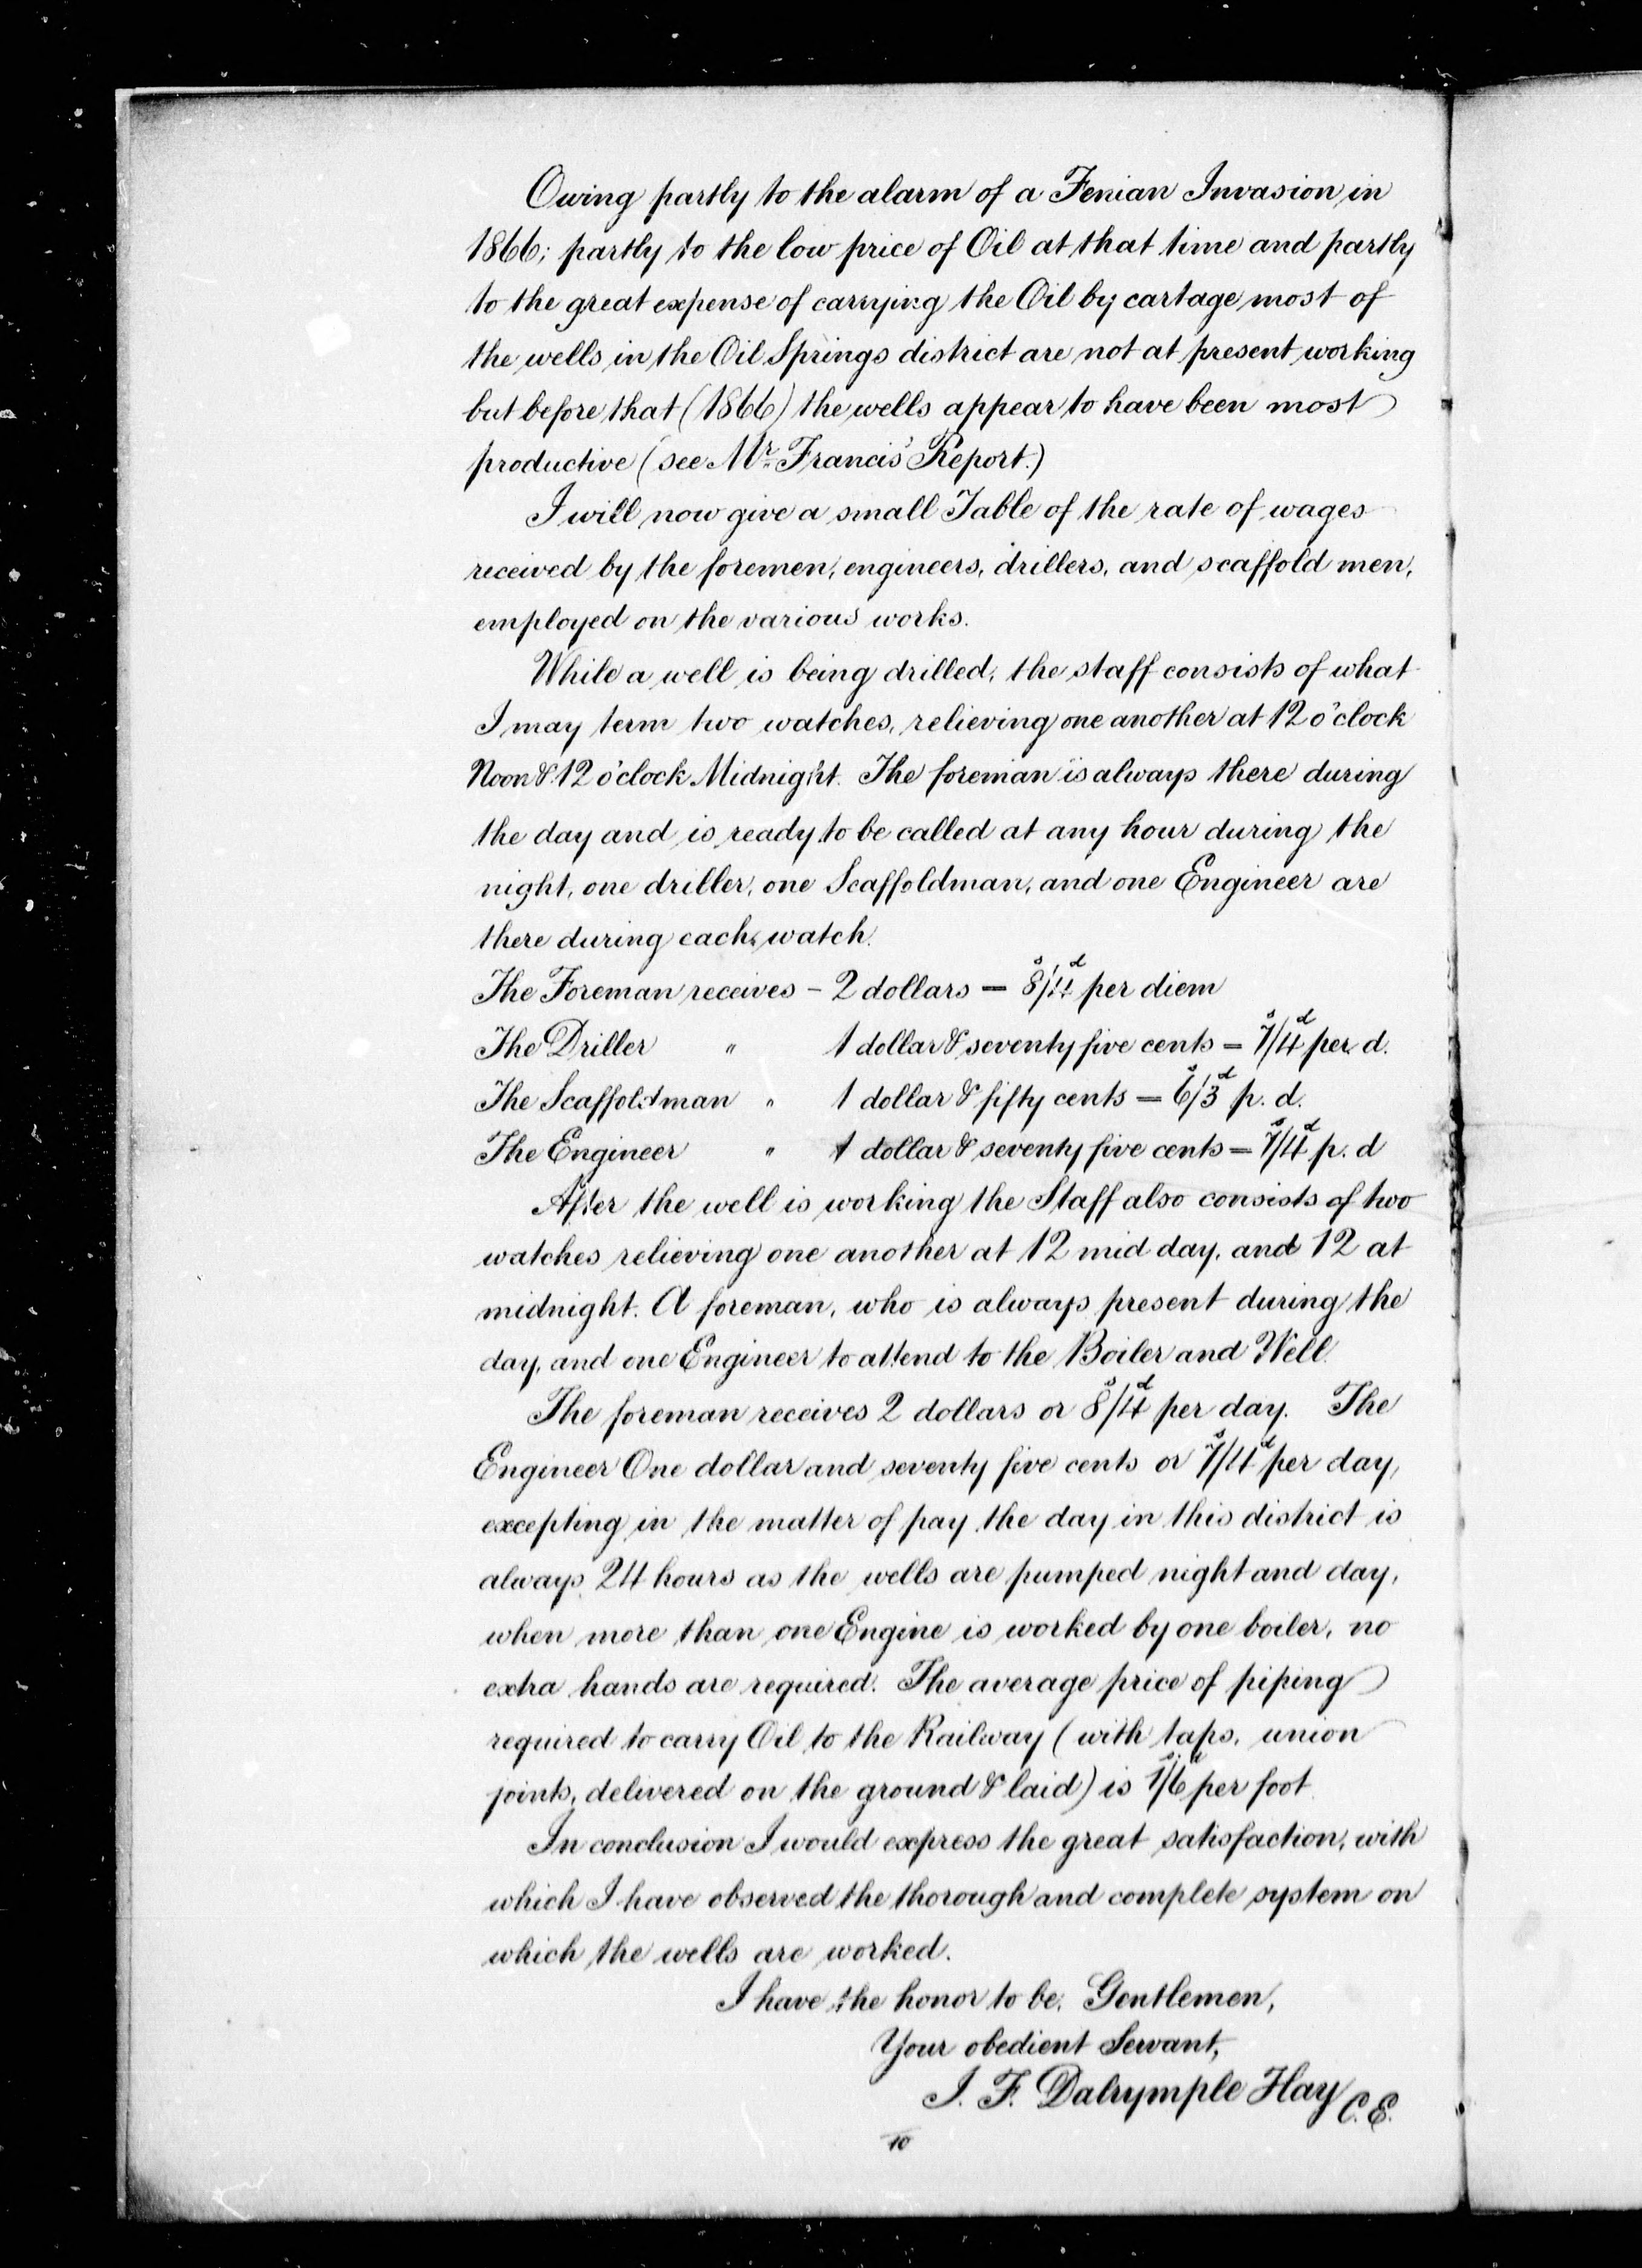 Owing partly to the alarm of a Fenian Invasion in
1866; partly to the low price of Oil at that time and partly
to the great expense of carrying the Oil by cartage most of
the wells in the Oil Springs district are not at present working
but before that (1866) the wells appear to have been most
productive (see Mr. Francis' Report.)
I will now give a small Table of the rate of wages
received by the foremen, engineers, drillers, and scaffold men,
employed on the various works.
While a well is being drilled, the staff consists of what
I may term two watches, relieving one another at 12 o'clock
Noon & 12 o'clock Midnight. The foreman is always there during
the day and is ready to be called at any hour during the
night, one driller, one Scaffoldman, and one Engineer are
there during each watch.
The Foreman receives – 2 dollars = 8s/4d per diem
The Driller " 1 dollar & seventy five cents = 7s/4d per d.
The Scaffoldman " 1 dollar & fifty cents = 6s/3d p. d.
The Engineer " 1 dollar & seventy five cents = 7s/4d p. d
After the well is working the Staff also consists of two
watches relieving one another at 12 mid day, and 12 at
midnight. A foreman, who is always present during the
day, and one Engineer to attend to the Boiler and Well.
The foreman receives 2 dollars or 8s/4d per day. The
Engineer One dollar and seventy five cents or 7s/4d per day,
excepting in the matter of pay the day in this district is
always 24 hours as the wells are pumped night and day,
when more than one Engine is worked by one boiler, no
extra hands are required. The average price of piping
required to carry Oil to the Railway (with taps, union
joints, delivered on the ground & laid) is 1s/6d per foot.
In conclusion I would express the great satisfaction, with
which I have observed the thorough and complete system on
which the wells are worked.
I have the honor to be, Gentlemen,
Your obedient Servant,
J. F. Dalrymple Hay C.E.
10